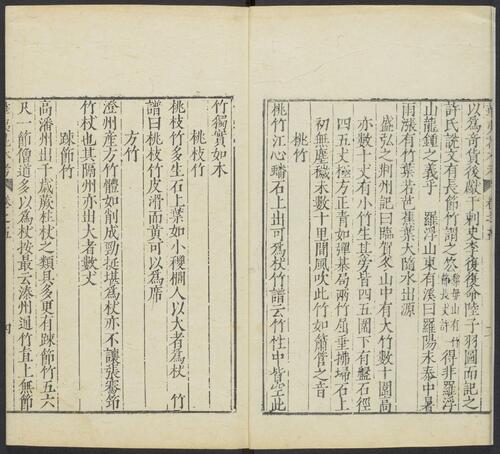 以爲奇貨後嚴于剌史李復復命陸子羽圖而記之
許氏說文有長節竹謂之䇞 羅浮山有竹節長丈許 得非羅浮
山龍鍾之義乎 羅浮山東有溪曰羅陽未泰中暑
雨漲有竹葉若芭蕉葉大隨水出源
盛弘之荆州記曰臨賀冬山中有大竹數十圍高
亦數十丈有小竹生其旁皆四五圍下有盤石徑
四五丈極方正青如彈棊局兩竹屈垂拂掃石上
初無塵穢未數十里聞風吹此竹如簫管之音
桃竹
桃竹江心蟠石上出可爲杖竹譜云竹性中皆空此
竹獨實如木
桃枝竹
桃枝竹多生石上葉如小椶櫚人以大者爲杖 竹
譜曰桃枝竹皮滑而黃可以爲席
方竹
澄州產方竹體如削成勁挺堪爲杖亦不讓張騫筇
竹杖也其隔州亦出大者數丈
踈節竹
高潘州出千歲蕨拄杖之類其多更有踈節竹五六
尺一節僧道多以爲杖按最云㴞州通竹直上無節
四